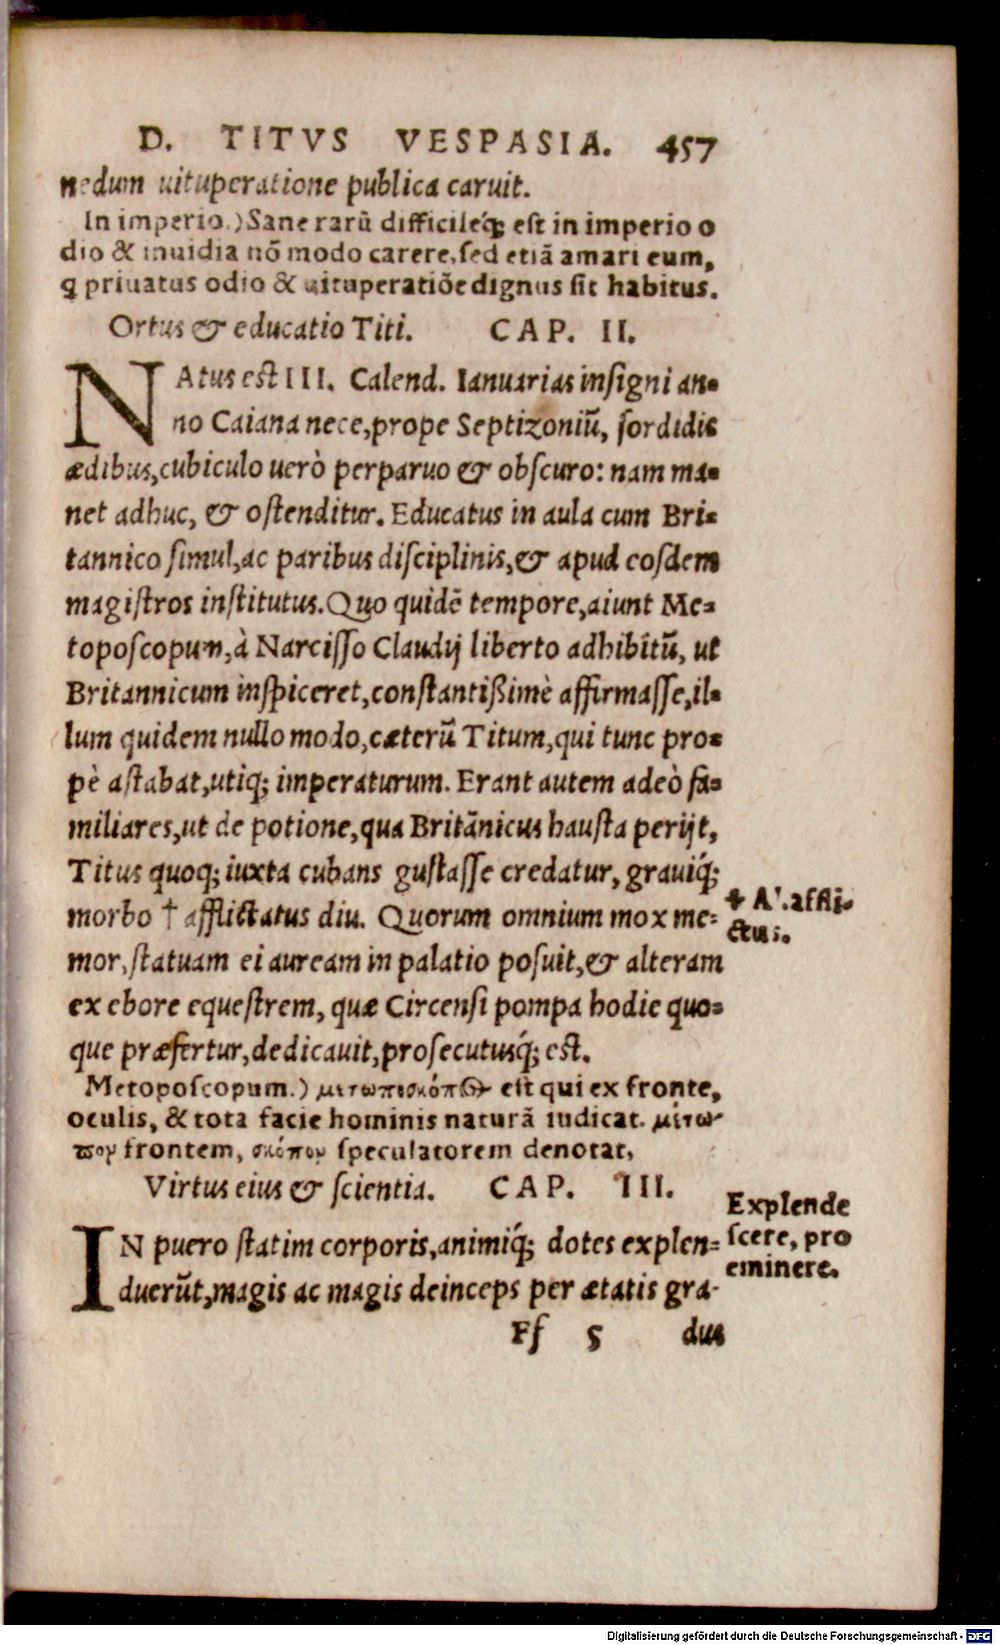 D. TITVS VESPASIA. 457
nedum uituperatione publica caruit.
In imperio.) Sane rarũ difficileq́; est in imperio o
dio & inuidia nõ modo carere, sed etiã amari eum,
q priuatus odio & uituperatiõe dignus sit habitus.
Ortus & educatio Titi. CAP. II.
NAtus est III. Calend. Ianuarias insigni an-
no Caiana nece, prope Septizoniũ, sordidis
ædibus, cubiculo uerò perparuo & obscuro: nam ma-
net adhuc, & ostenditur. Educatus in aula cum Bri-
tannico simul, ac paribus disciplinis, & apud eosdem
magistros institutus. Quo quidẽ tempore, aiunt Me-
toposcopum, à Narcisso Claudij liberto adhibitũ, ut
Britannicum inspiceret, constantißimè affirmasse, il-
lum quidem nullo modo, cæterũ Titum, qui tunc pro-
pè astabat, utiq; imperaturum. Erant autem adeò fa-
miliares, ut de potione, qua Britãnicus hausta perijt,
Titus quoq; iuxta cubans gustasse credatur, grauiq́;
morbo † afflictatus diu. Quorum omnium mox me-
mor, statuam ei auream in palatio posuit, & alteram
ex ebore equestrem, quæ Circensi pompa hodie quo-
que præfertur, dedicauit, prosecutusq́; est.
✝ A'. affli-
ctus.
Metoposcopum.) μετωποσκόπος est qui ex fronte,
oculis, & tota facie hominis naturã iudicat. μέτω-
πον frontem, σκόπον speculatorem denotat,
Virtus eius & scientia. CAP. III.
IN puero statim corporis, animiq́; dotes explen-
duerũt, magis ac magis deinceps per ætatis gra-
Explende
scere, pro
eminere.
Ff 5 dus
Digitalisierung gefördert durch die Deutsche Forschungsgemeinschaft - DFG